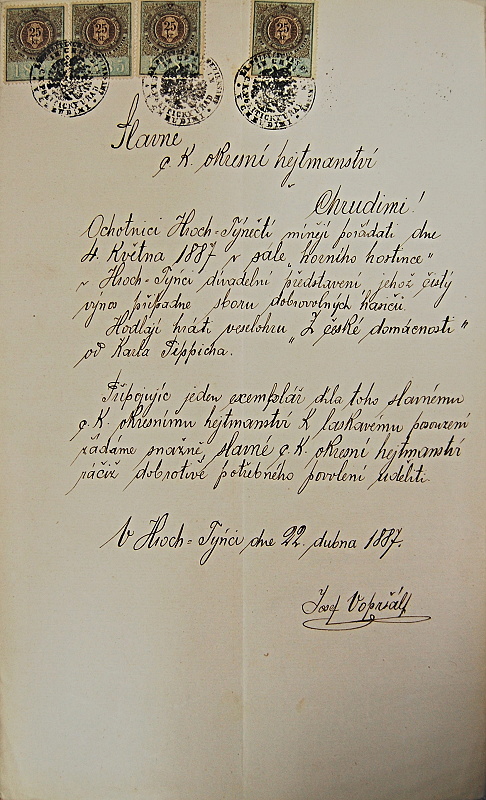 25 25 25 25
Slavné
c. K. okresní hejtmanství
v
Chrudimi!
Ochotnici Hroch-Týnečtí mínějí pořádati dne
4. Května 1887 v sále „horního hostince“
v Hroch-Týnci divadelní představení, jehož čistý
výnos připadne sboru dobrovolných hasičů.
Hodlají hráti veselohru „Z české domácnosti“
od Karla Pippicha.
Připojujíc jeden exemplář díla toho slavnému
c. K. okresnímu hejtmanství K laskavému posouzení
žádáme snažně, slavné c. K. okresní hejtmanství
račiž dobrotivě potřebného povolení uděliti.
V Hroch-Týnci dne 22. dubna 1887.
Josef Vopršálek